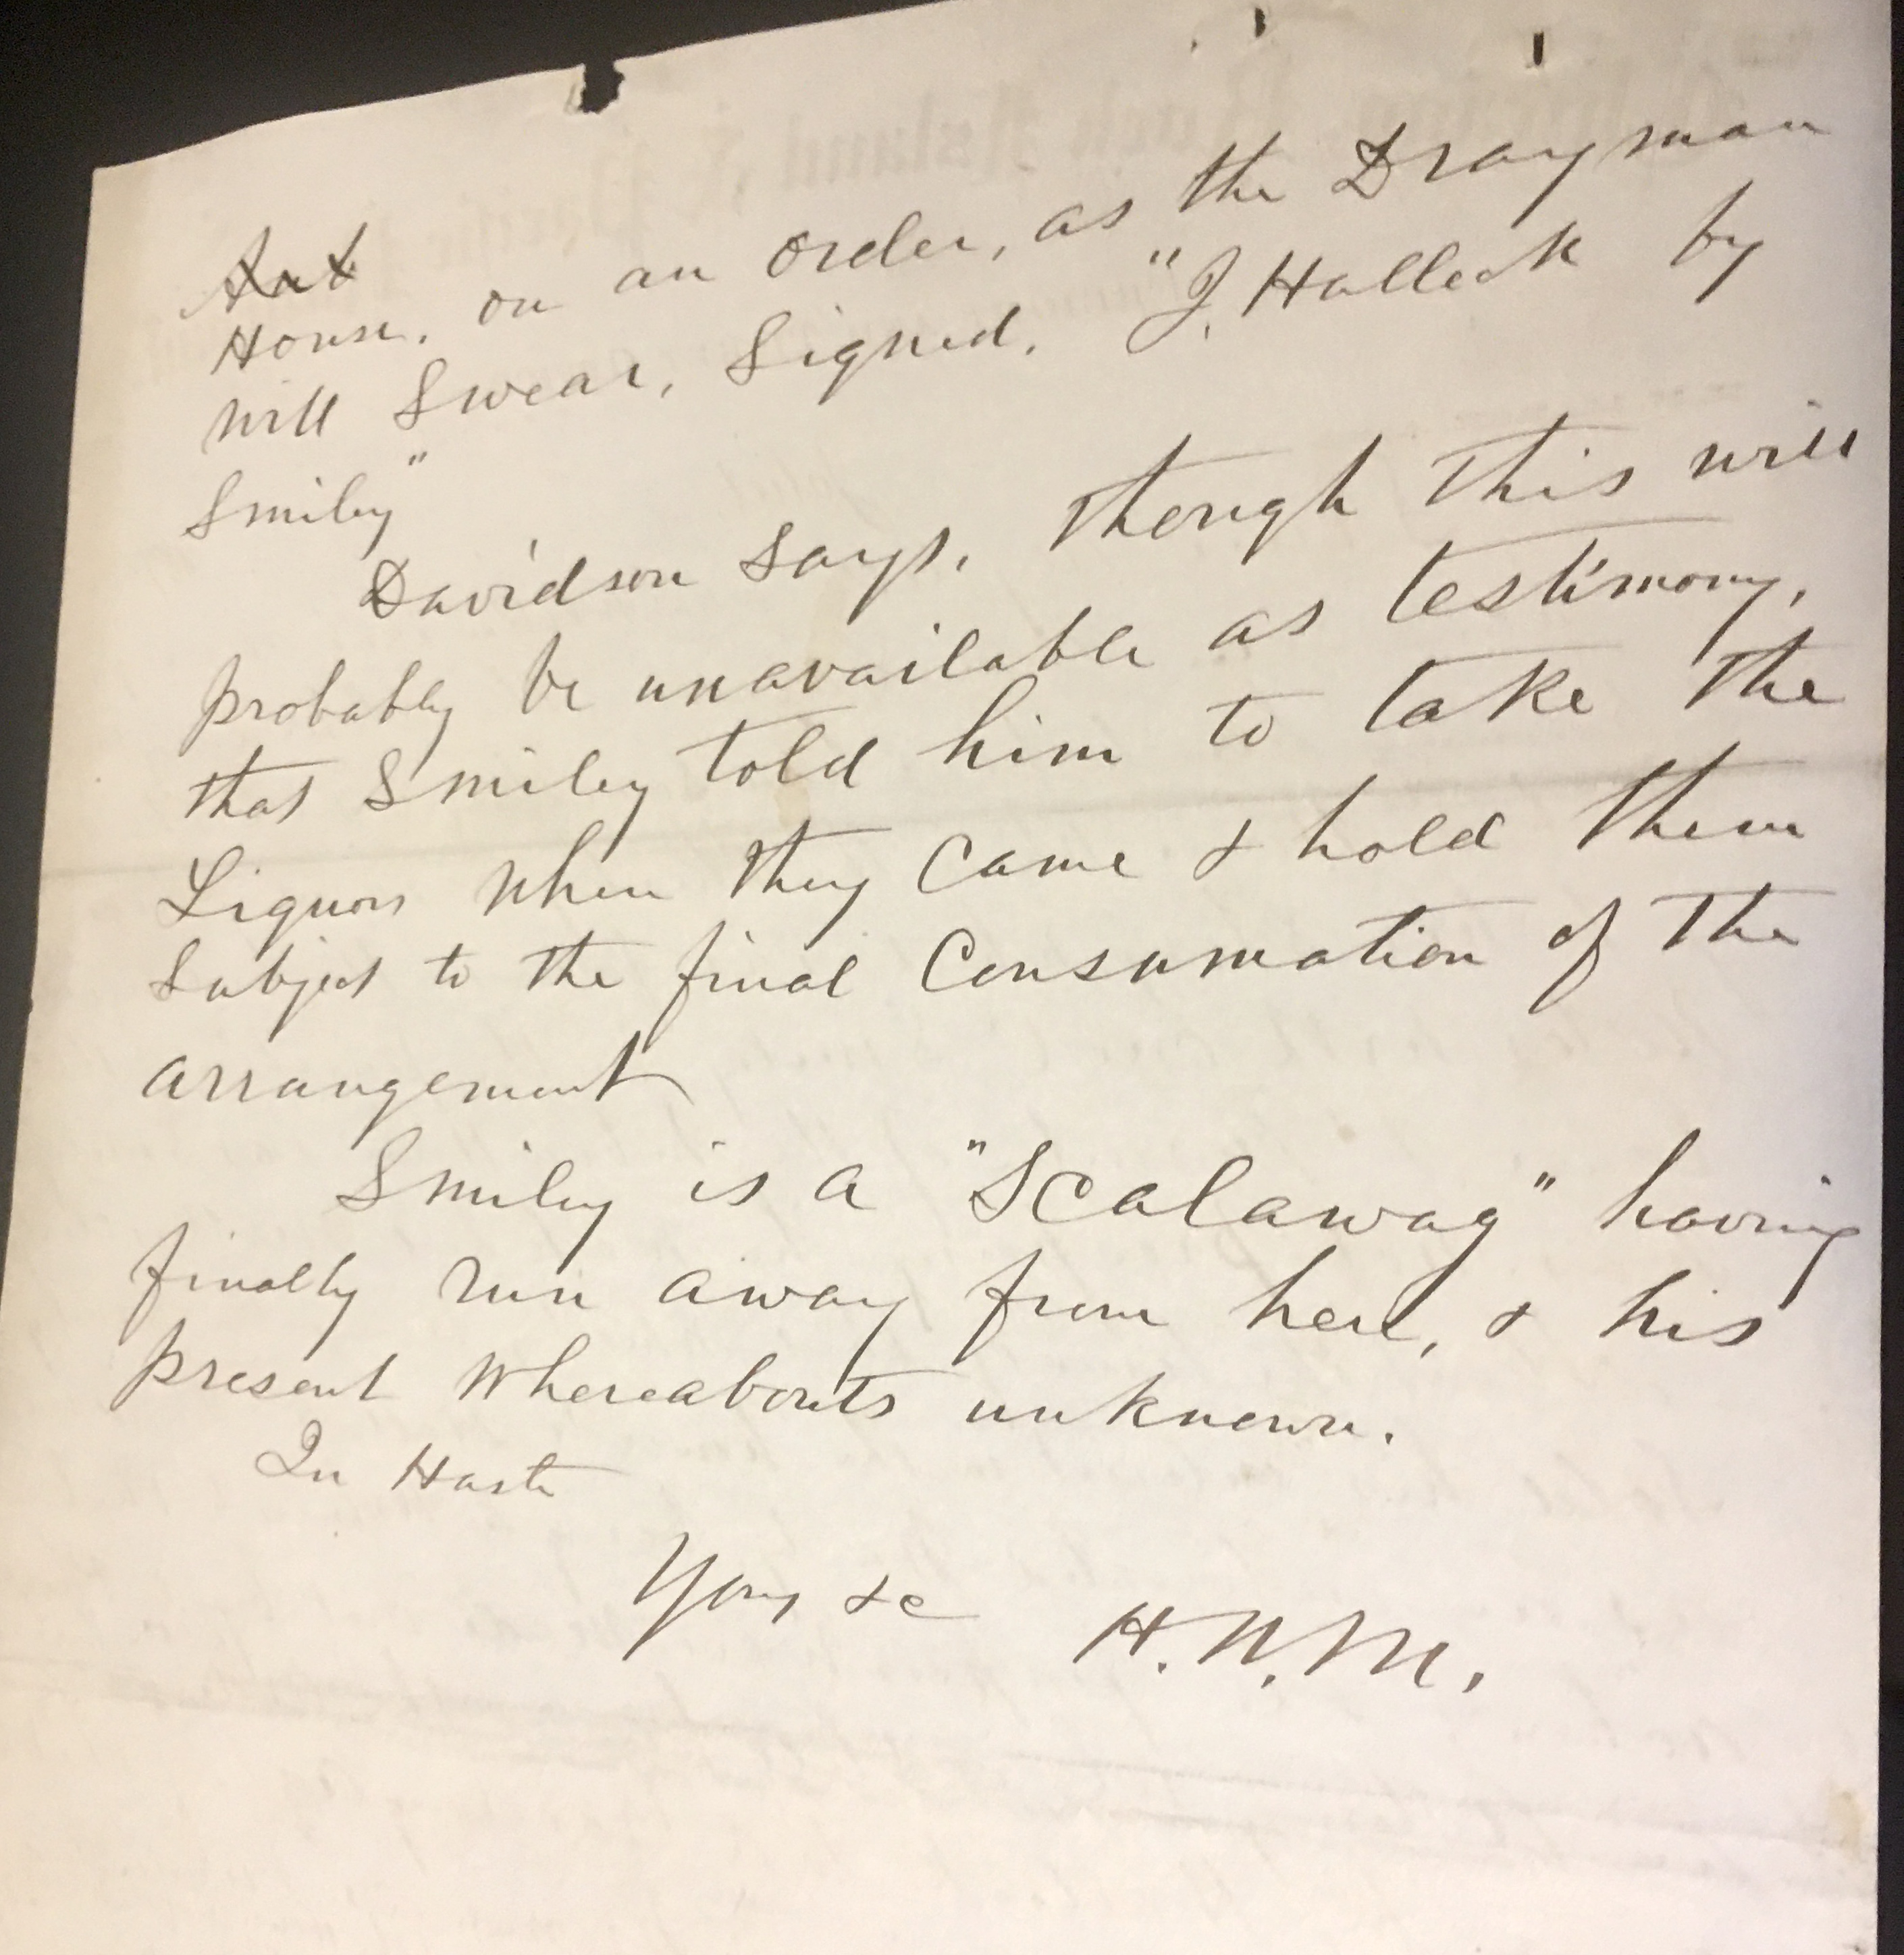 House, on an order, as the Drayman
will Swear, Signed, "J. Halleck by
Smiley"
Davidson says, though this will
probably be unavailable as testimony,
that Smiley told him to take the
Liquors when they came & hold them
Subject to the final Consumation of the
arrangement
Smiley is a "Scalawag" having
finally run away from here, & his
present whereabouts unknown.
In Haste
Yours &c H.N.M.